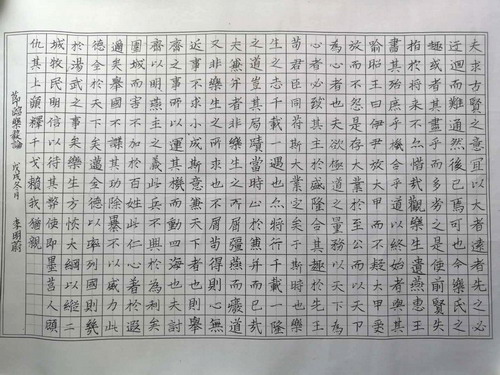 夫求古賢之意宜以大者遠者先之必
迂迴而難通然後已焉可也今樂氏之
趣或者其未盡乎而多劣之是使前賢失
指於將来不亦惜哉觀樂生遺燕惠王
書其殆庶乎機合乎道以終始者與其
喻昭王曰伊尹放大甲而不疑大甲受
放而不怨是存大業於至公而以天下
為心者也夫欲極道之量務以天下為
心者必致其主於盛隆合其趣於先王
苟君臣同符斯大業定矣于斯時也樂
生之志千載一遇也亦將行千載一隆
之道豈其局蹟當時止於兼并而已哉
夫兼并者非樂生之所屑彊燕而廢道
又非樂生之所求也不屑苟得則心無
近事不求小成斯意兼天下者也則舉
齊之事所以運其機而動四海也夫討
齊以明燕主之義此兵不興於為利矣
圍城而害不加於百姓此仁心著於遐
邇矣舉國不謀其功除暴不以威力此
德全於天下矣邁全德以率列國則幾
於湯武之事矣樂生方恢大綱以縱二
城牧民明信以待其弊使即墨莒人顧
仇其上願釋干戈賴我猶親
節臨樂毅論 戊戌冬月 李明蔚